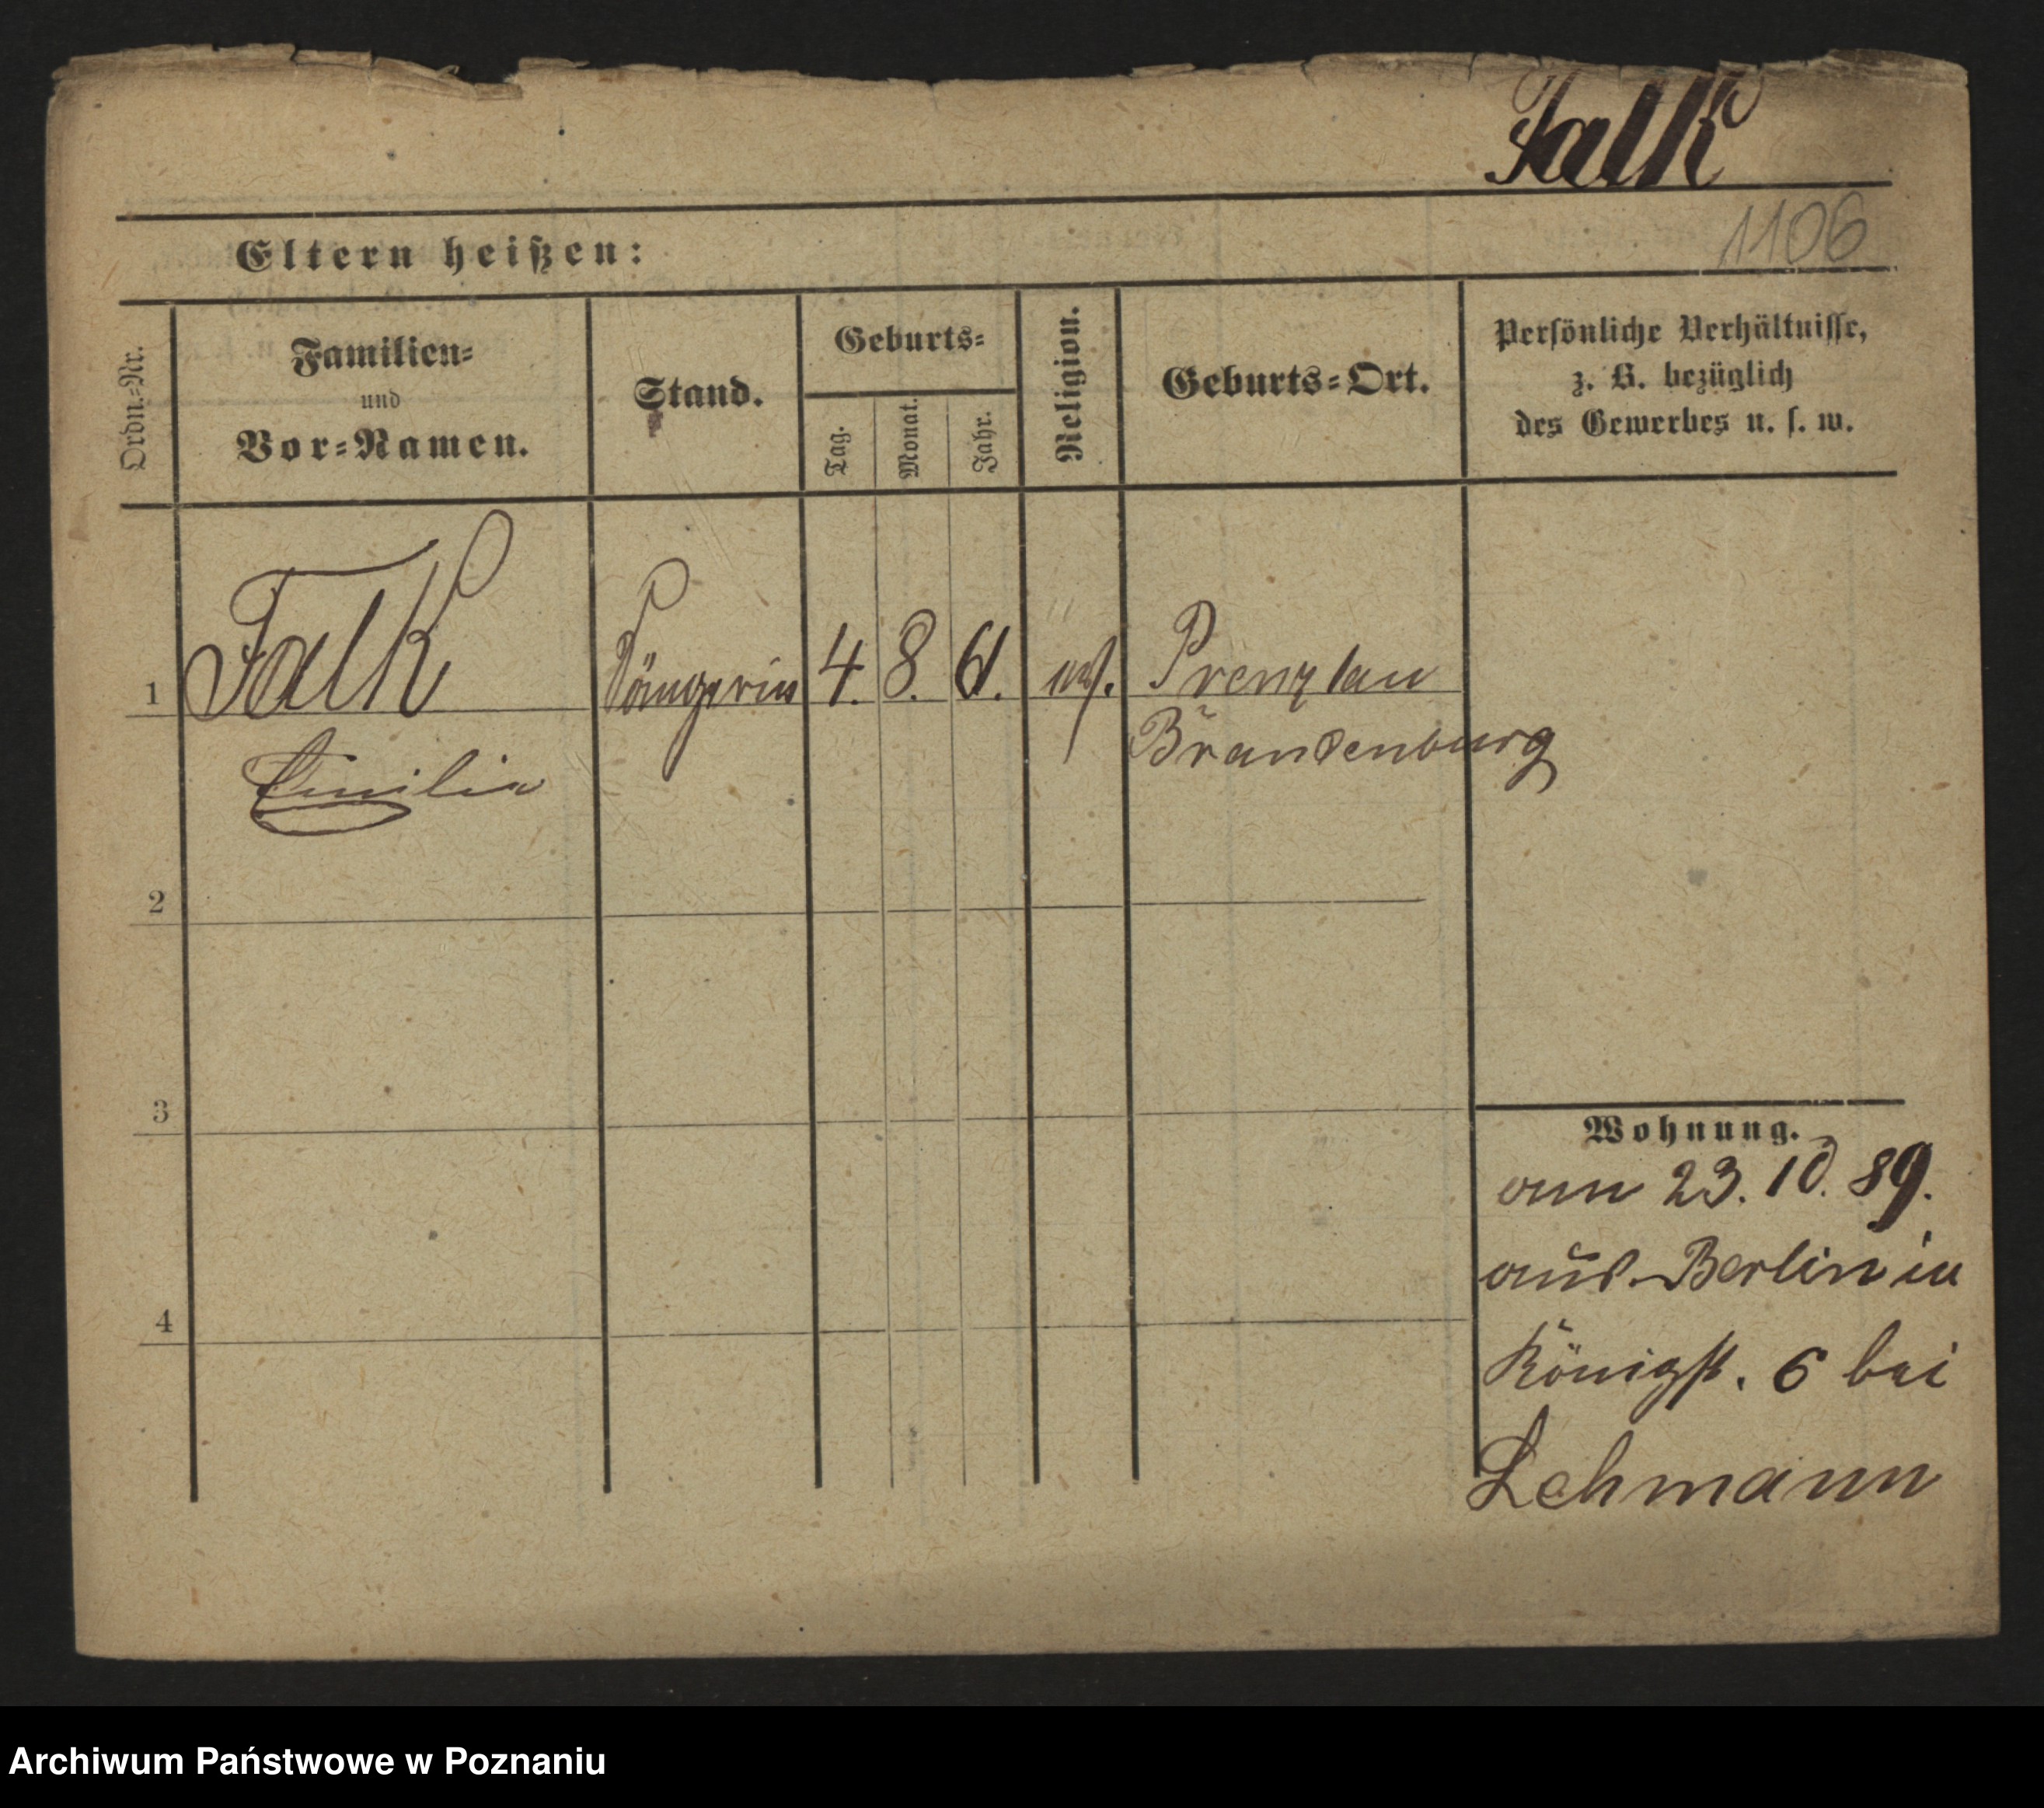 Falk
1106
Eltern heißen:
Ordn.-Nr.
Familien-
und
Vor-Namen.
Stand.
Geburts-
Tag.
Monat.
Jahr.
Religion.
Geburts-Ort.
Persönliche Verhältnisse,
z. B. bezüglich
des Gewerbes u. s. w.
1 Falk Sängerin 4. 8. 61. Prenzlau
Emilie Brandenburg
2
3
4
Wohnung.
am 23. 10. 89.
aus Berlin in
Königst. 6 bei
Lehmann
Archiwum Państwowe w Poznaniu